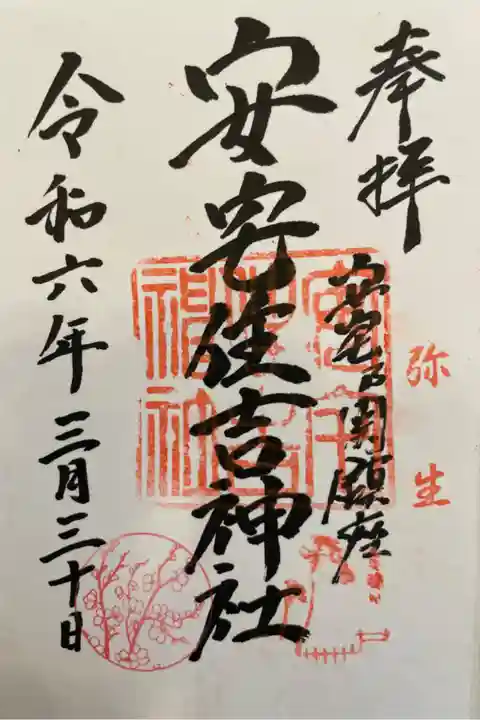 奉拝
安宅古関鎮座
弥生
安宅住吉神社
令和六年三月三十日